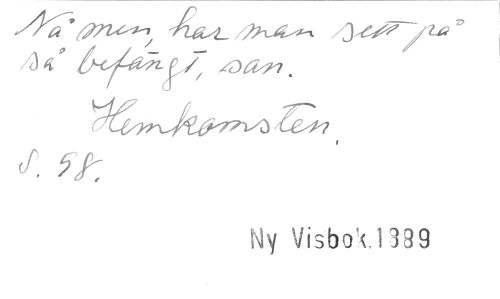 Nå men, har man sett på
så befängt, san.
Hemkomsten.
S. 58.
Ny Visbok.1889